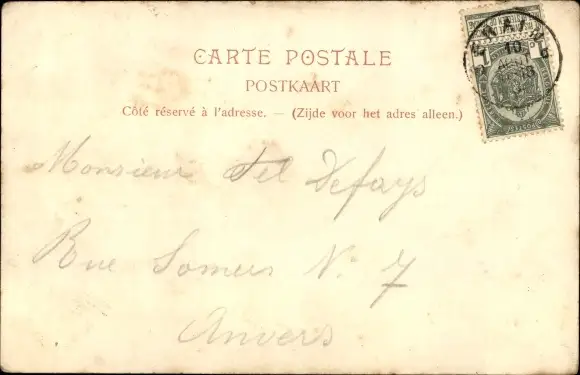 CARTE POSTALE
POSTKAART
Côté réservé à l'adresse. — (Zijde voor het adres alleen.)
Monsieur Fel Defays
Rue Somers N. 7
Anvers